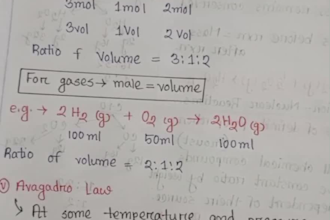 3mol 1mol 2mol
3vol 1Vol 2Vol
Ratio f Volume = 3:1:2
For gases → mole = volume
e.g. → 2H₂ (g) + O₂ (g) → 2H₂O (g)
100ml 50ml 100ml
Ratio of volume = 2:1:2
(v) Avagadro Law
↳ At some temperature and